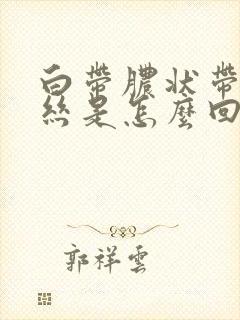 白帶膿狀帶
絲是怎麼回
郭祥雲